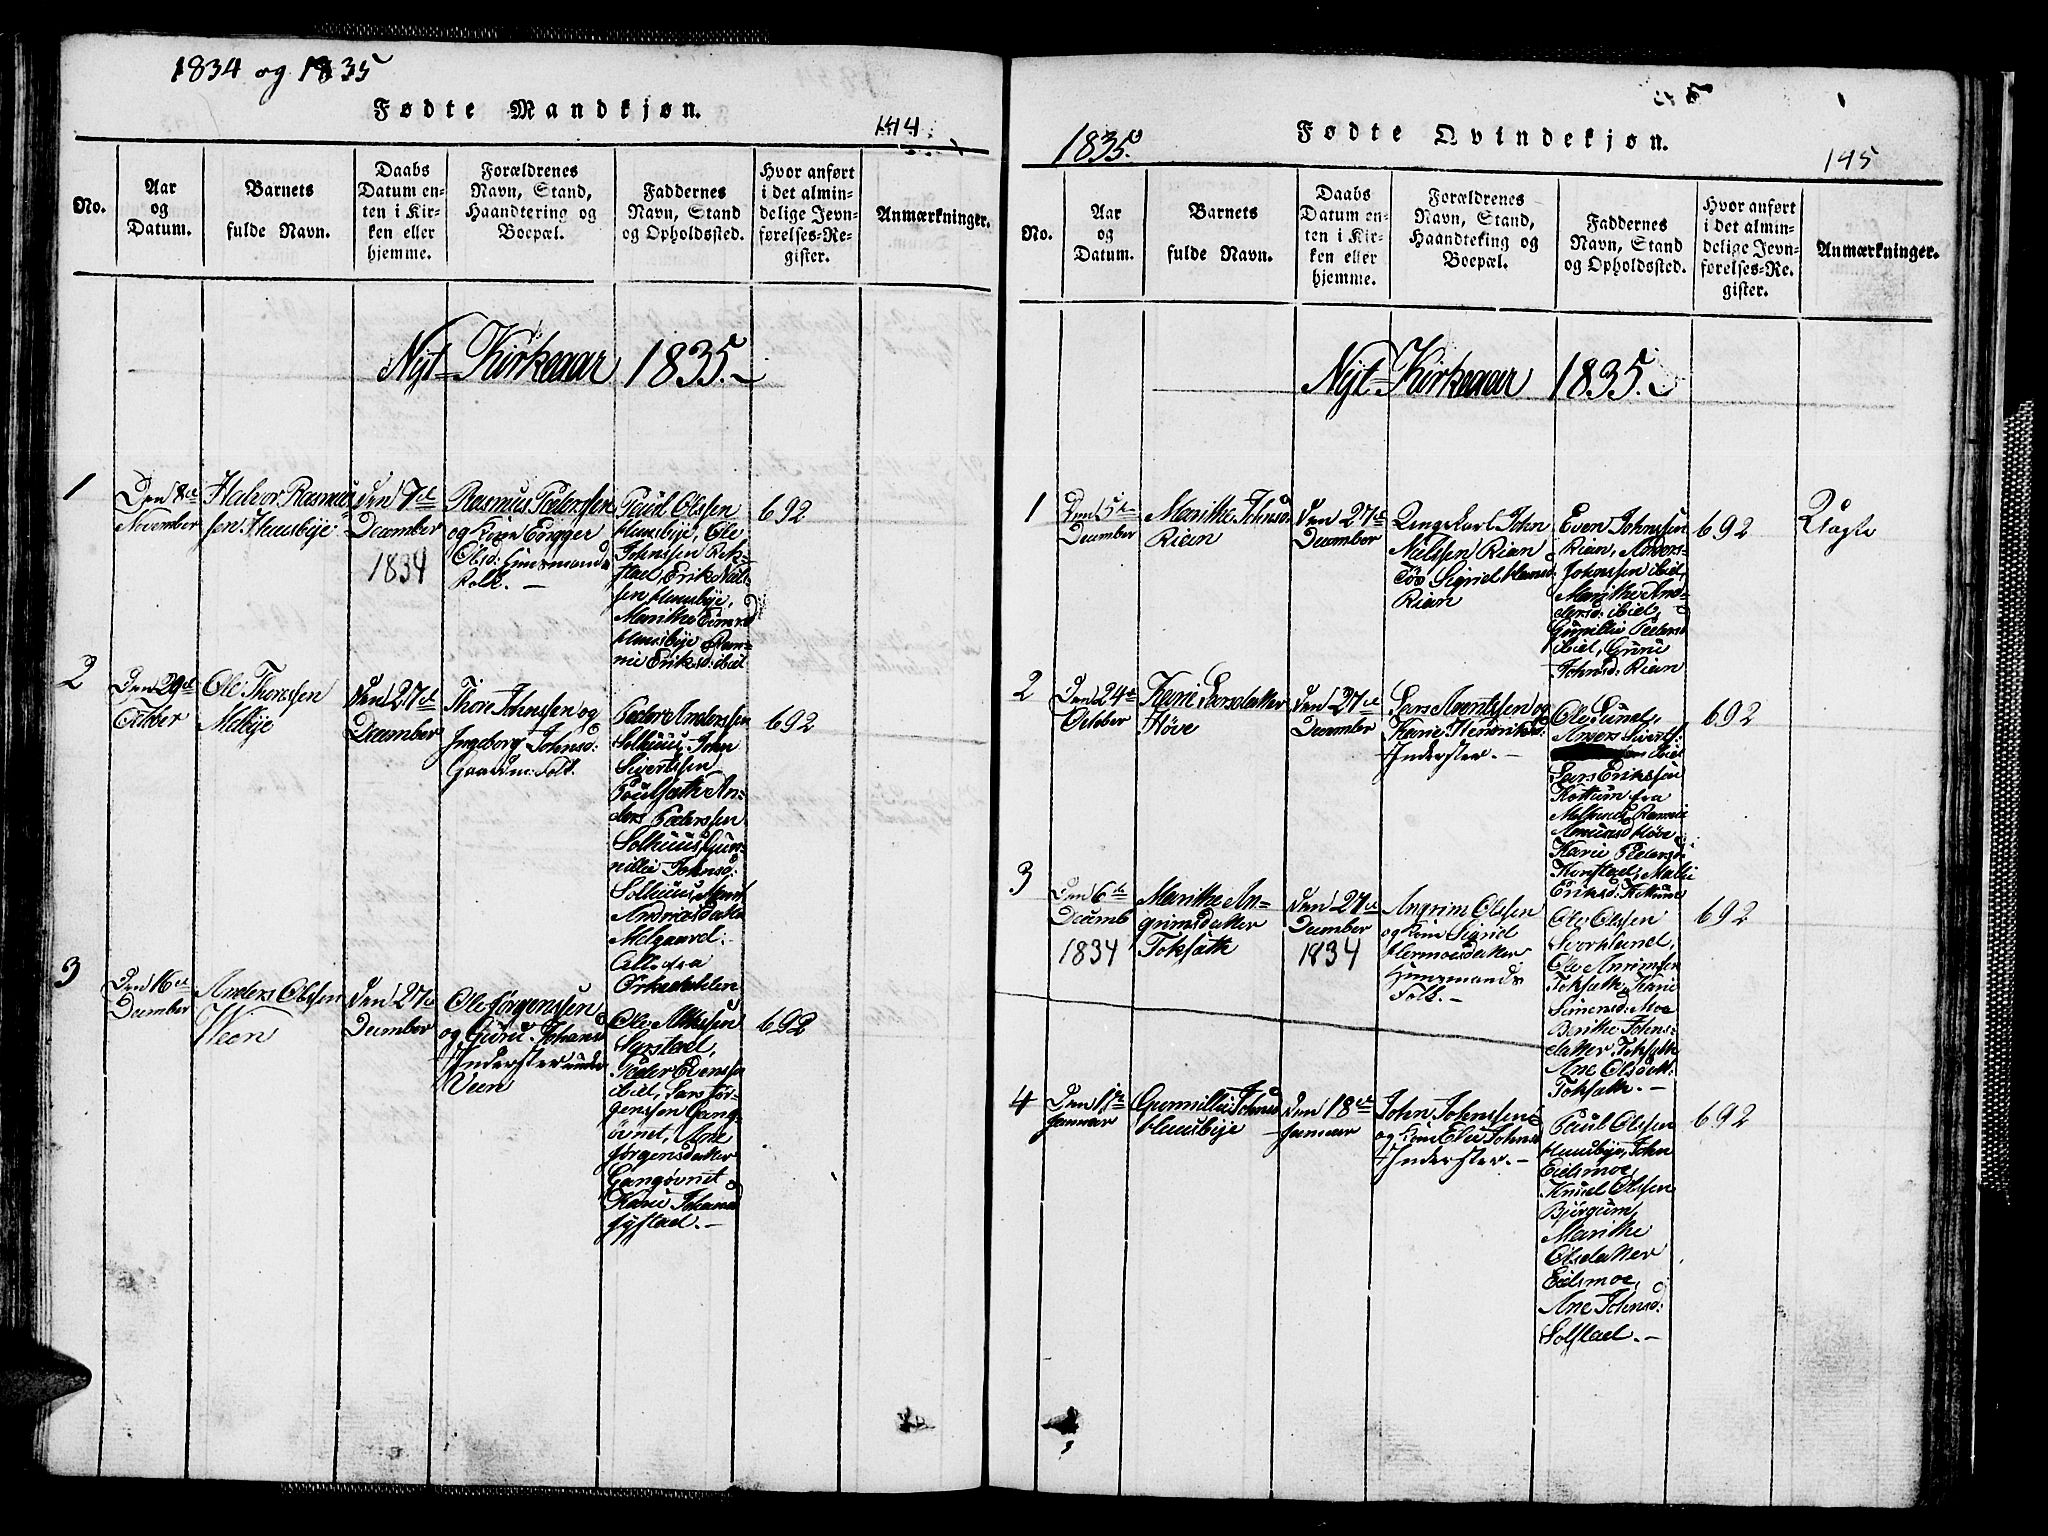 1834 og 1835
Fødte Mandkjøn.
144
No.
Aar
og
Datum.
Barnets
fulde Navn.
Daabs
Datum en-
ten i Kir-
ken eller
hjemme.
Forældrenes
Navn, Stand,
Haandtering og
Boepæl.
Faddernes
Navn, Stand
og Opholdssted.
Hvor anført
i det almin-
delige Jevn-
førelses-Re-
gister.
Anmærkninger.
Nyt Kirkeaar 1835.
1
Den 8de
November
Halvor Rasmus
sen Huusbÿe
Den 7de
December
1834
Rasmus Pedersen
og
Olsd:
Folk.
Poul Olssen
Huusbÿe, Ole
Johnssen
Erik
sen Huusbÿe,
Marithe
Huusbÿe
Eriksd: ibid
692
2
Den 29de
October
Ole Thoressen
Melbÿe
Den 27de
December
Thore Johnssen og
Ingeborg Johnsd:
Folk.
Peder Anderssen
Solhuus, John
Sivertssen
An-
ders Pederssen
Solhuus, Gun-
nille Johnsd:
Solhuus, Marit
Andreasdatter
Melgaard:
Alle fra
Orkedahlen
692
3
Den 16de
December
Anders Olssen
Veen
Den 27de
December
Ole Jørgenssen
og Guru Johansd
Inderster under
Veen
Ole
Syrstad,
Peder Evenssen
ibid, Lars Jør-
genssen Gang-
øvnet, Ane
Jørgensdatter
Gangøvnet
Kari
Syrstad.
692
1835.
Fødte Qvindekjøn.
145
No.
Aar
og
Datum.
Barnets
fulde Navn.
Daabs
Datum en-
ten i Kir-
ken eller
hjemme.
Forældrenes
Navn, Stand,
Haandteking og
Boepæl.
Faddernes
Navn, Stand
og Opholdssted.
Hvor anført
i det almin-
delige Jevn-
førelses-Re.
gister.
Anmærkninger.
Nyt Kirkeaar 1835.
1
Den 5te
December
Marithe Johnsd
Rian
Den 27de
December
Ungekarl John
Nielssen Rian
Sigrid Hansd
Rian
Even Johnssen
Rian, Anders
Johnssen ibid,
Marithe An-
dersd: ibid,
Gunillie Pedersd
ibid, Guru
Johnsd: Rian
692
Uægte
2
Den 24de
October
Karie Larsdatter
Høve
Den 27de
December
Lars Arentssen og
Karie Henriksd:
Inderster.
Ole Lund,
Anders Sivertss.
ibid
Lars Erikssen
fra
Meldal,
Høve
Karie Pedersd:
Malie
Eriksd:
692
3
Den 6te
Decemb
1834
Marithe An-
grimsdatter
Toksæth
Den 27de
December
1834
Angrim Olssen
og Kone Sigrid
Huusmands
Folk.
Ole Olssen
Svorklund,
Ole Angrimsen
Toksæth, Karie
Simensd: Moe
Berithe Johns-
datter, Toksæth
Ane Olsdatt:
Toksæth.
692
4
Den 1ste
Januar
Gunnillie Johnsd
Huusbÿe
Den 18de
Januar
John Johnssen
og Kone Elie Johnsd
Inderster.
Paul Olssen
Huusbÿe, John
Eidsmoe,
Knud Olssen
Bjørgum,
Marithe
Olsdatter
Eidsmoe,
Ane Johnsd:
Solstad.
692